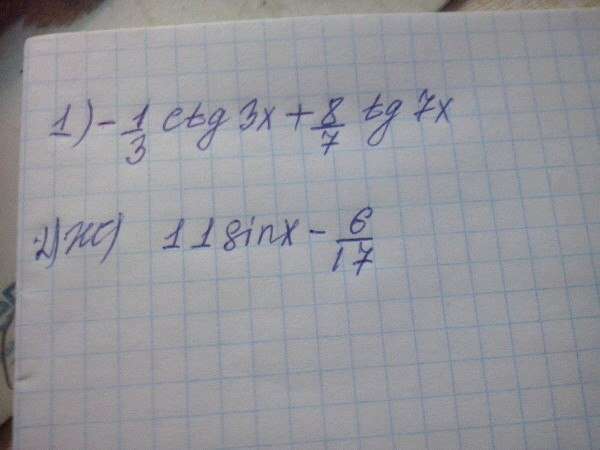 1) -1/3 ctg 3x + 8/7 tg 7x
2) ж) 11 sinx - 6/17